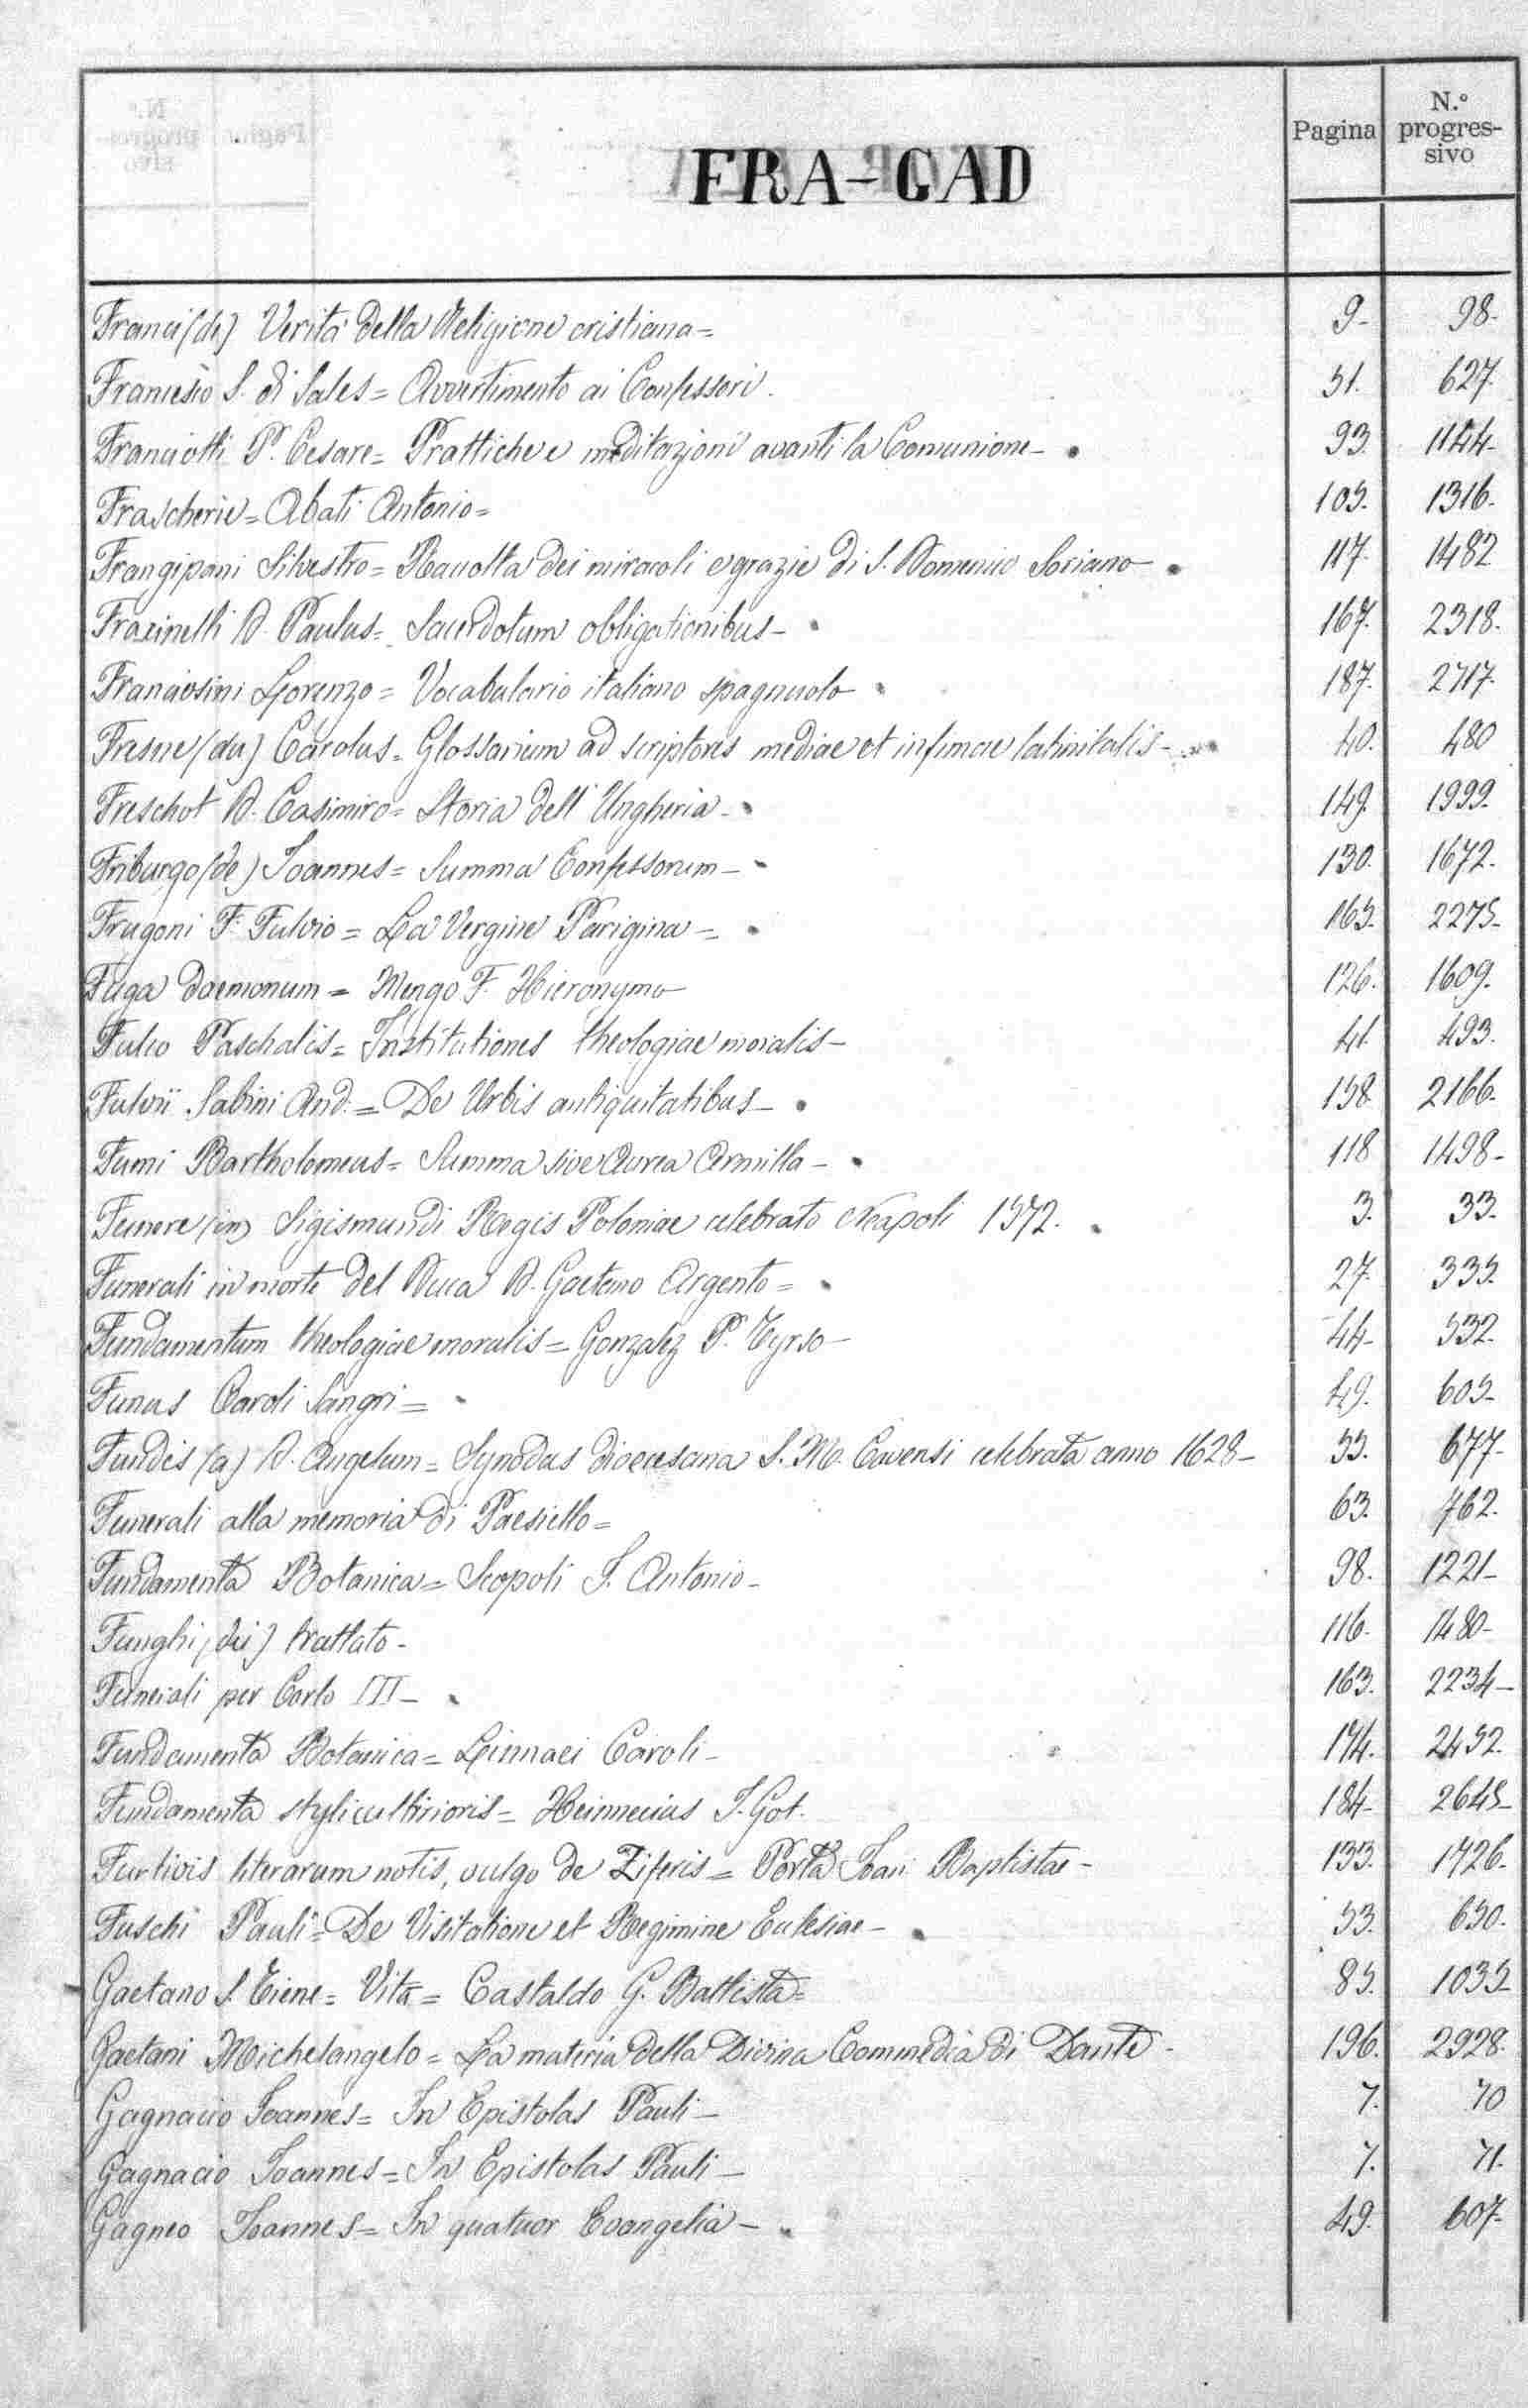 Pagina N.° progres-sivo
FRA-GAD
Franci (de) Verità della Religione cristiana= 9- 98-
Francesco S. di Sales= Avvertimento ai Confessori. 51. 627.
Franciotti P. Cesare= Prattiche e meditazioni avanti la Comunione- 93. 1144-
Frascherie= Abati Antonio= 105. 1316.
Frangipani Silvestro= Raccolta dei miracoli e grazie di S. Domenico Soriano- 117. 1482
Fraxinelli D. Paulus= Sacerdotum obligationibus- 167. 2318.
Franciosini Lorenzo= Vocabulario italiano spagnuolo 187. 2717.
Fresne (du) Carolus= Glossarium ad scriptores mediae et infimae latinitatis- 40. 480
Freschot D. Casimiro= Storia dell'Ungheria- 149. 1999.
Friburgo (de) Joannes= Summa Confessorum- 130. 1672.
Frugoni F. Fulvio= La Vergine Parigina- 165. 2275-
Fuga daemonum= Mengo F. Hieronymo 126. 1609.
Fulco Paschalis= Institutiones theologiae moralis- 41. 493.
Fulvii Sabini And.= De Urbis antiquitatibus- 158. 2166.
Fumi Bartholomeus= Summa sive Aurea Armilla- 118 1498-
Funere (in) Sigismundi Regis Poloniae celebrato Neapoli 1572. 3. 33.
Funerali in morte del Duca D. Gaetano Argento= 27. 335.
Fundamentum theologiae moralis= Gonzalez P. Tyrso- 44- 532.
Funus Caroli Sangri= 49. 605-
Fundis (a) D. Angelum= Synodus dioecesana S. M. Cavensi celebrata anno 1628- 55. 677-
Funerali alla memoria di Paesiello= 63. 762.
Fundamenta Botanica= Scopoli J. Antonio- 98. 1221-
Funghi (dei) trattato- 116. 1480-
Funerali per Carlo III- 163. 2234-
Fundamenta Botanica= Linnaei Caroli- 174. 2432.
Fundamenta styli cultirioris= Heinnecius J. Got. 184- 2645-
Furtivis literarum notis, vulgo de Ziferis= Porta Joan Baptistae- 133. 1726.
Fuschi Pauli= De Visitatione et Regimine Eclesiae- 53. 650.
Gaetano S. Tiene= Vita= Castaldo G. Battista= 85. 1035-
Gaetani Michelangelo= La materia della Divina Commedia di Dante- 196. 2928.
Gagnacio Joannes= In Epistolas Pauli- 7. 70
Gagnacio Joannes= In Epistolas Pauli- 7. 71.
Gagneo Joannes= In quatuor Evangelia- 49. 607-